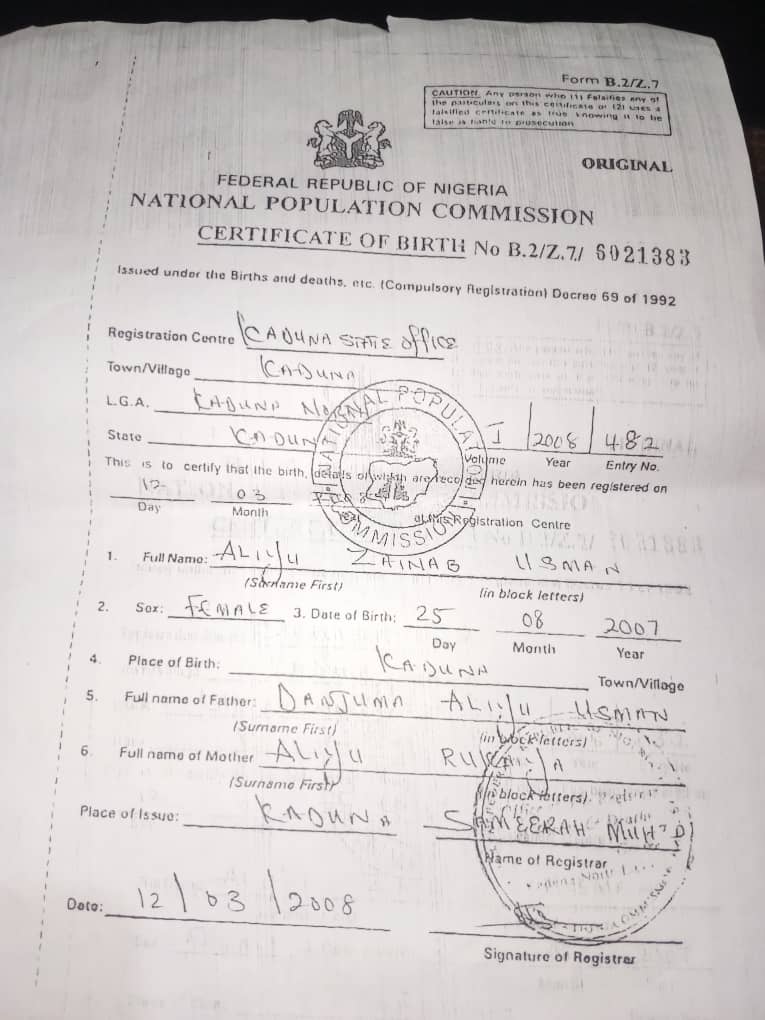 Form B.2/Z.7
CAUTION. Any person who (1) Falsifies any of
the particulars on this certificate or (2) uses a
falsified certificate as true knowing it to be
false is liable to prosecution
ORIGINAL
FEDERAL REPUBLIC OF NIGERIA
NATIONAL POPULATION COMMISSION
CERTIFICATE OF BIRTH No B.2/Z.7/ 6021383
Issued under the Births and deaths, etc. (Compulsory Registration) Decree 69 of 1992
Registration Centre KADUNA STATE OFFICE
Town/Village KADUNA
L.G.A. KADUNA
State KADUNA
NATIONAL POPULATION COMMISSION
I 2008 482
Volume Year Entry No.
This is to certify that the birth, details of which are recorded herein has been registered on
12 03
Day Month at this Registration Centre
1. Full Name: ALIYU ZAINAB USMAN
(Surname First) (in block letters)
2. Sex: FEMALE 3. Date of Birth: 25 08 2007
Day Month Year
4. Place of Birth: KADUNA Town/Village
5. Full name of Father: DANJUMA ALIYU USMAN
(Surname First) (in block letters)
6. Full name of Mother ALIYU RUKAIYA
(Surname First) (in block letters)
Place of Issue: KADUNA SAMEERAH MUH'D
Name of Registrar
Date: 12/03/2008
Signature of Registrar